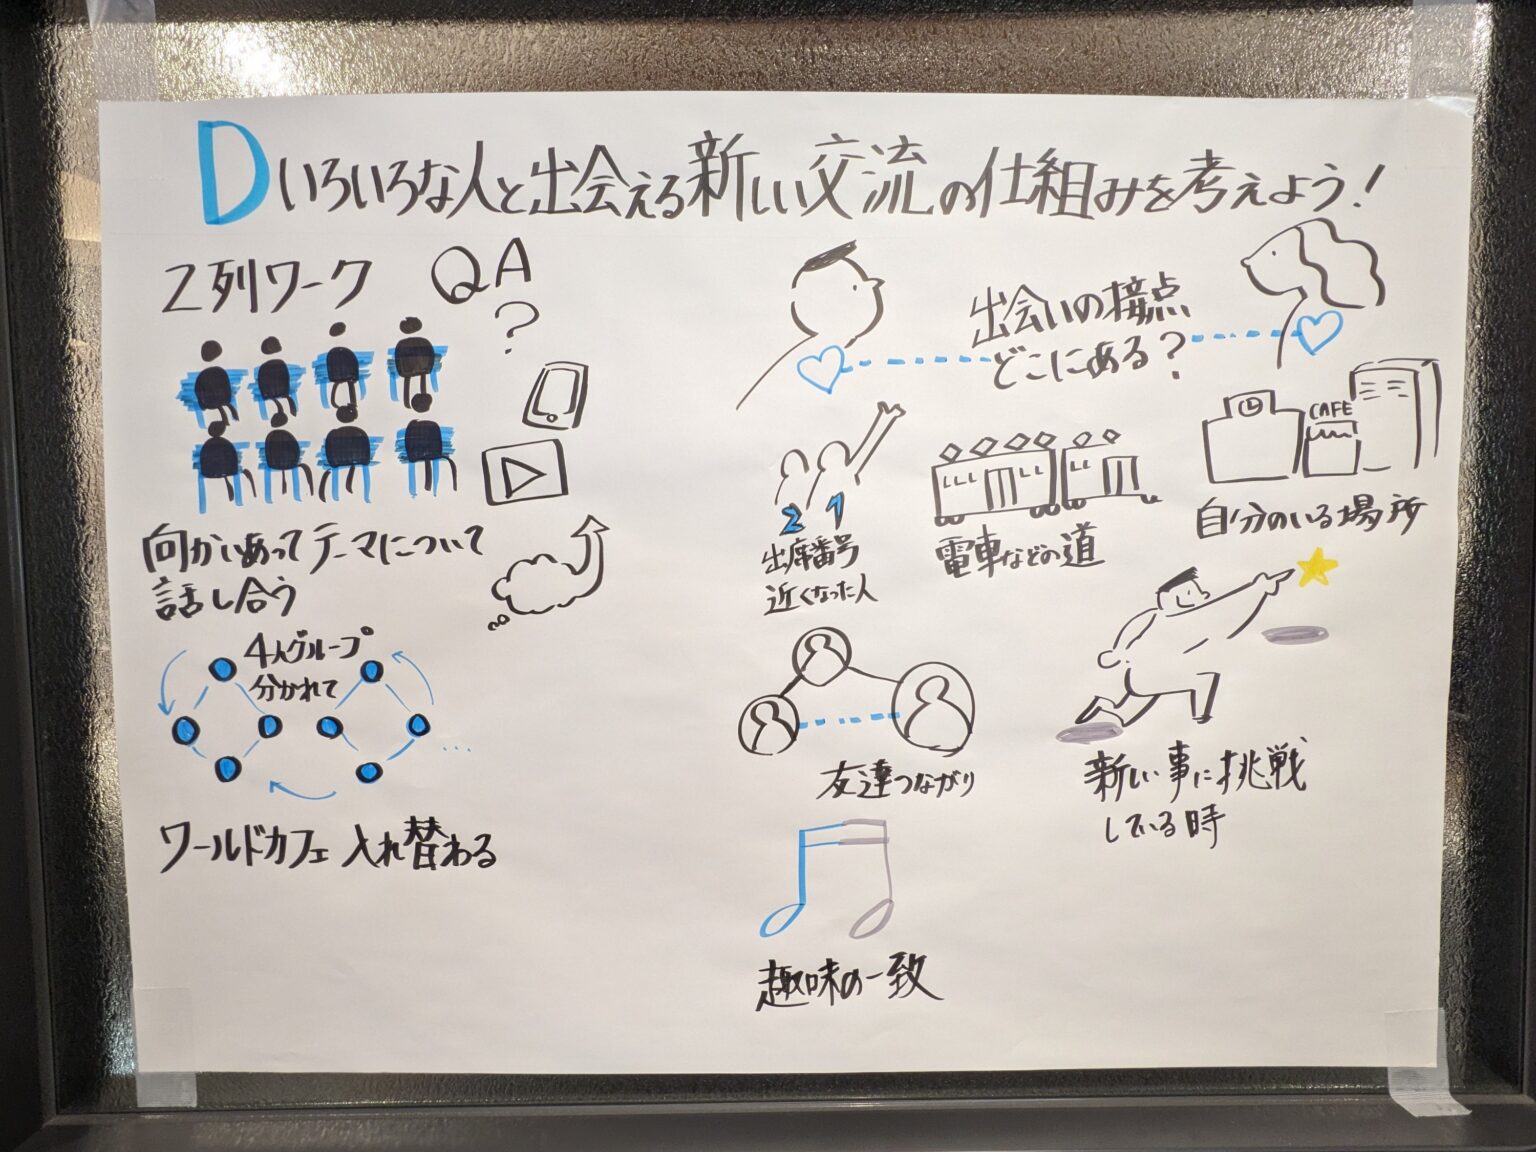 Dいろいろな人と出会える新しい交流の仕組みを考えよう!
2列ワーク
QA
?
向かいあってテーマについて
話し合う
4人グループ
分かれて
ワールドカフェ 入れ替わる
出会いの接点
どこにある?
2 1
出席番号
近くなった人
電車などの道
CAFE
自分のいる場所
友達つながり
新しい事に挑戦
している時
趣味の一致